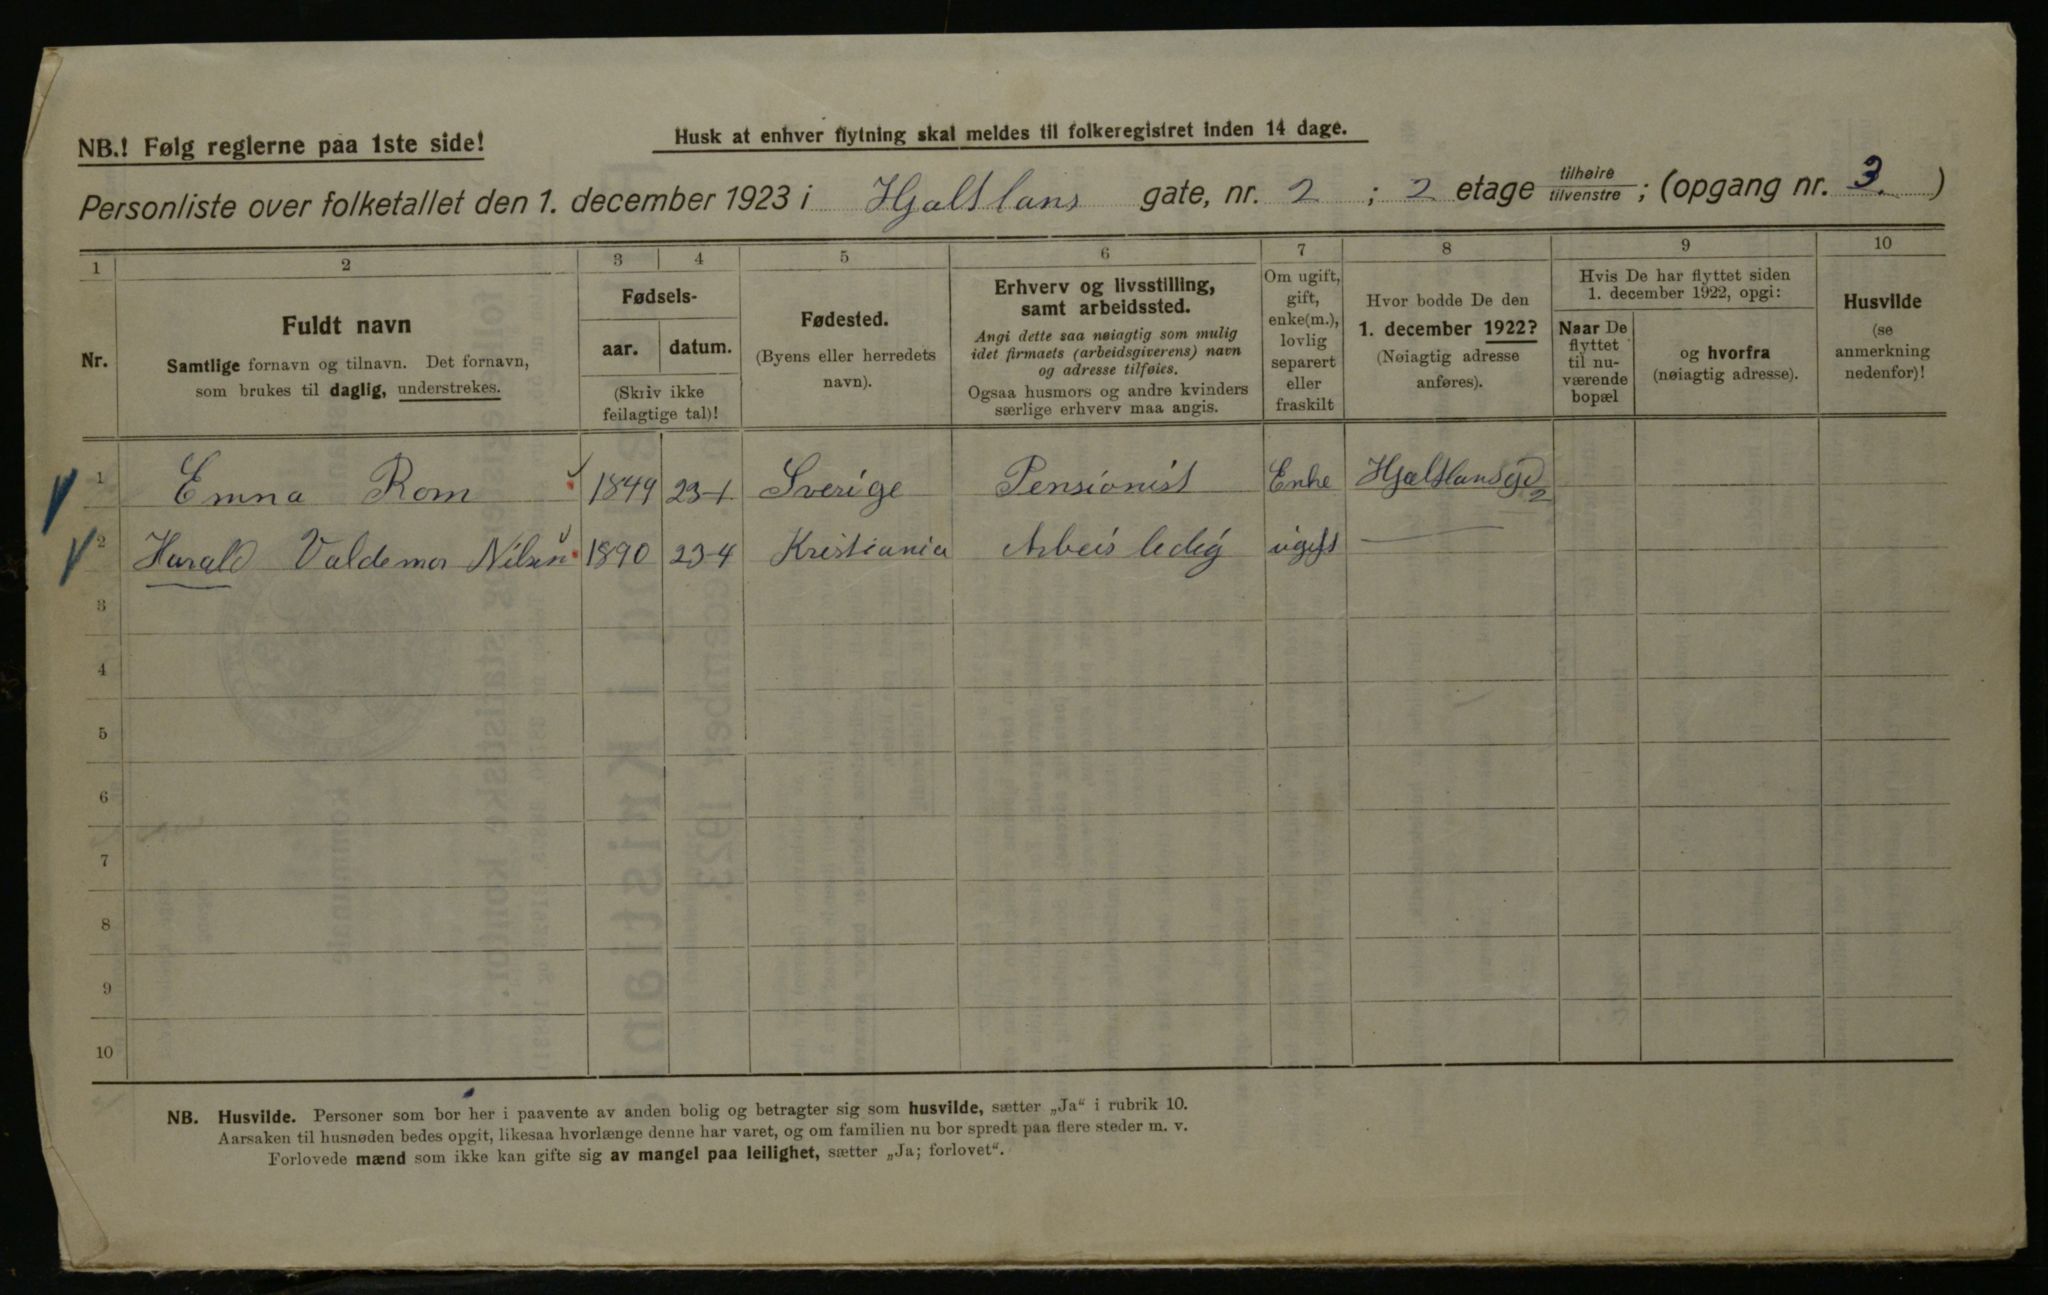 NB.! Følg reglerne paa 1ste side!
Husk at enhver flytning skal meldes til folkeregistret inden 14 dage.
Personliste over folketallet den 1. december 1923 i Hjaltlans gate, nr. 2 ; 2 etage tilhøire / tilvenstre ; (opgang nr. 3. )
1 2 3 4 5 6 7 8 9 10
Nr.
Fuldt navn
Samtlige fornavn og tilnavn. Det fornavn,
som brukes til daglig, understrekes.
Fødsels-
aar. datum.
(Skriv ikke
feilagtige tal)!
Fødested.
(Byens eller herredets
navn).
Erhverv og livsstilling,
samt arbeidssted.
Angi dette saa nøiagtig som mulig
idet firmaets (arbeidsgiverens) navn
og adresse tilføies.
Ogsaa husmors og andre kvinders
særlige erhverv maa angis.
Om ugift,
gift,
enke(m.),
lovlig
separert
eller
fraskilt
Hvor bodde De den
1. december 1922?
(Nøiagtig adresse
anføres).
Hvis De har flyttet siden
1. december 1922, opgi:
Naar De
flyttet
til nu-
værende
bopæl
og hvorfra
(nøiagtig adresse).
Husvilde
(se
anmerkning
nedenfor)!
1 Emna Rom 1849 23-1 Sverige Pensionist Enke Hjaltlansgd 2
2 Harald Valdemar Nilsen 1890 23-4 Kristiania Arbeis ledig ugift —
3
4
5
6
7
8
9
10
NB. Husvilde. Personer som bor her i paavente av anden bolig og betragter sig som husvilde, sætter „Ja“ i rubrik 10.
Aarsaken til husnøden bedes opgit, likesaa hvorlænge denne har varet, og om familien nu bor spredt paa flere steder m. v.
Forlovede mænd som ikke kan gifte sig av mangel paa leilighet, sætter „Ja; forlovet“.